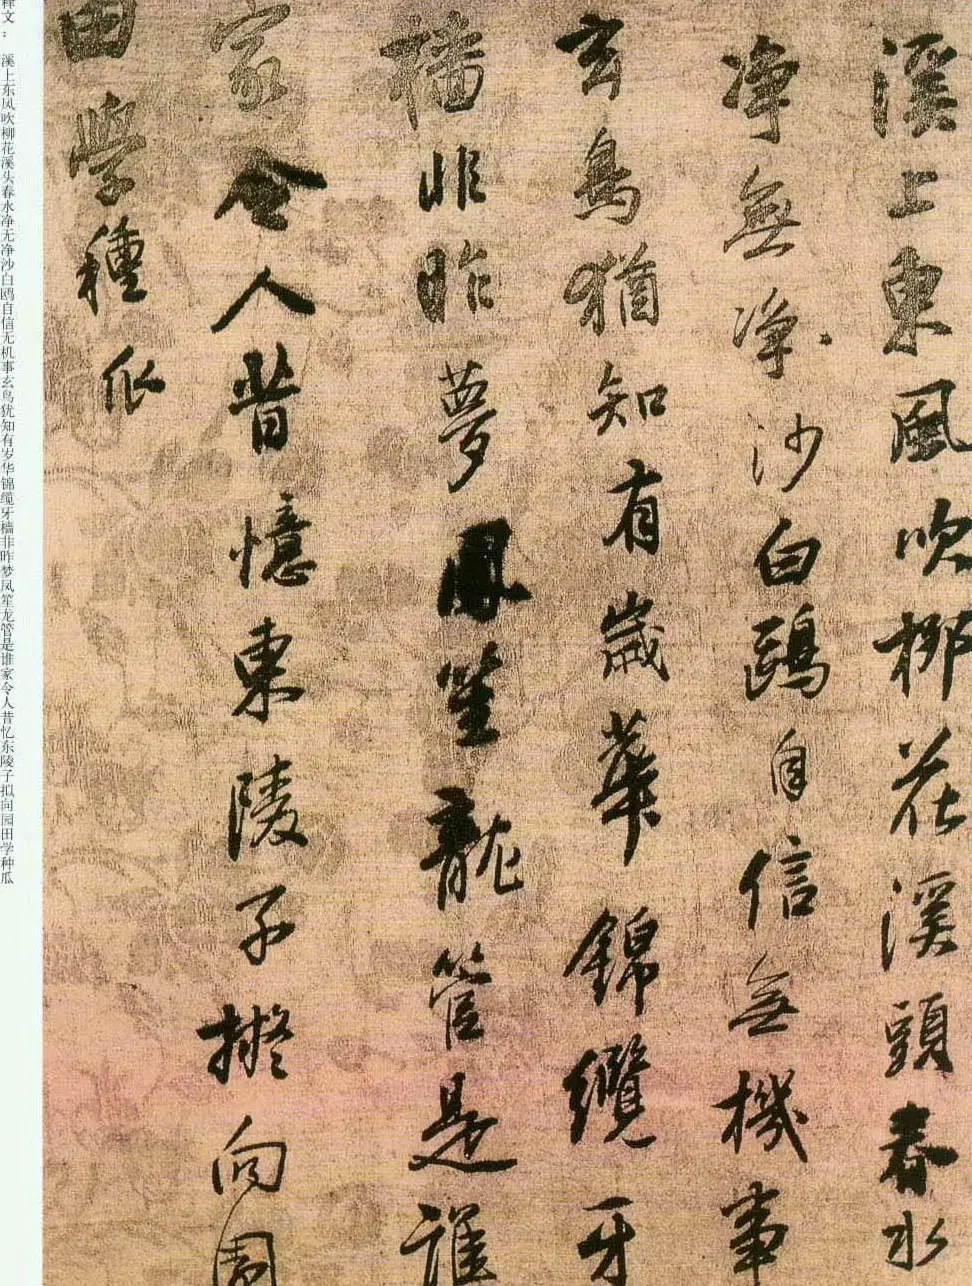 溪上東風吹柳花溪頭春水
淨無淨沙白鷗自信無機事
玄鳥猶知有歲華錦纜牙
檣非昨夢鳳笙龍管是誰
家令人昔憶東陵子擬向園
田學種瓜
释文：溪上东风吹柳花溪头春水净无净沙白鸥自信无机事玄鸟犹知有岁华锦缆牙樯非昨梦凤笙龙管是谁家令人昔忆东陵子拟向园田学种瓜